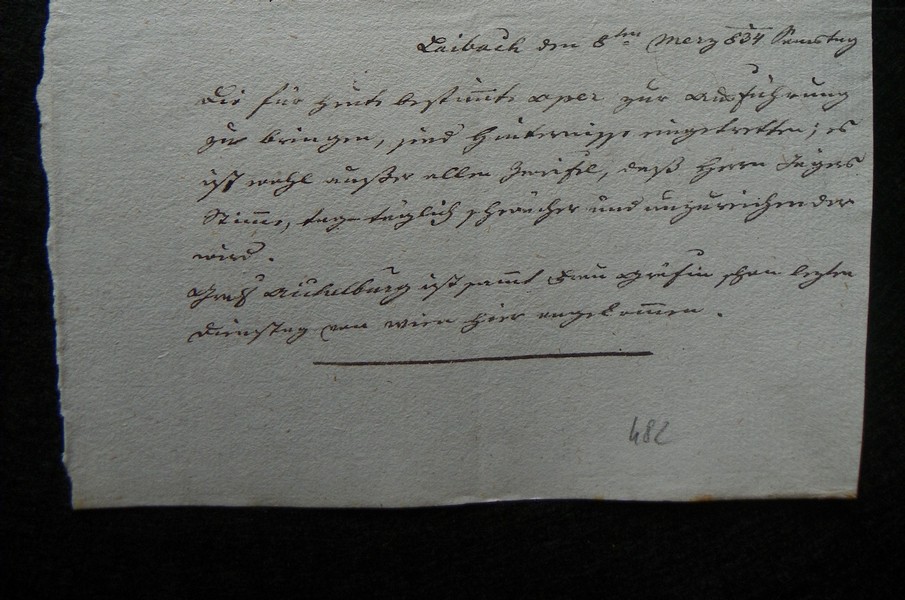 Laibach den 8ten Merz 834 Samstag
Die für heute bestimte oper zur Aufführung
zu bringen, sind Hinternisse eingetretten; es
ist wohl außer allen Zweifel, daß Herrn Jägers
Stimme, tag täglich schwächer und unzureichender
wird.
Graf Aichelburg ist samt Frau Gräfin schon lezten
Dienstag von Wien hier angekommen.
482